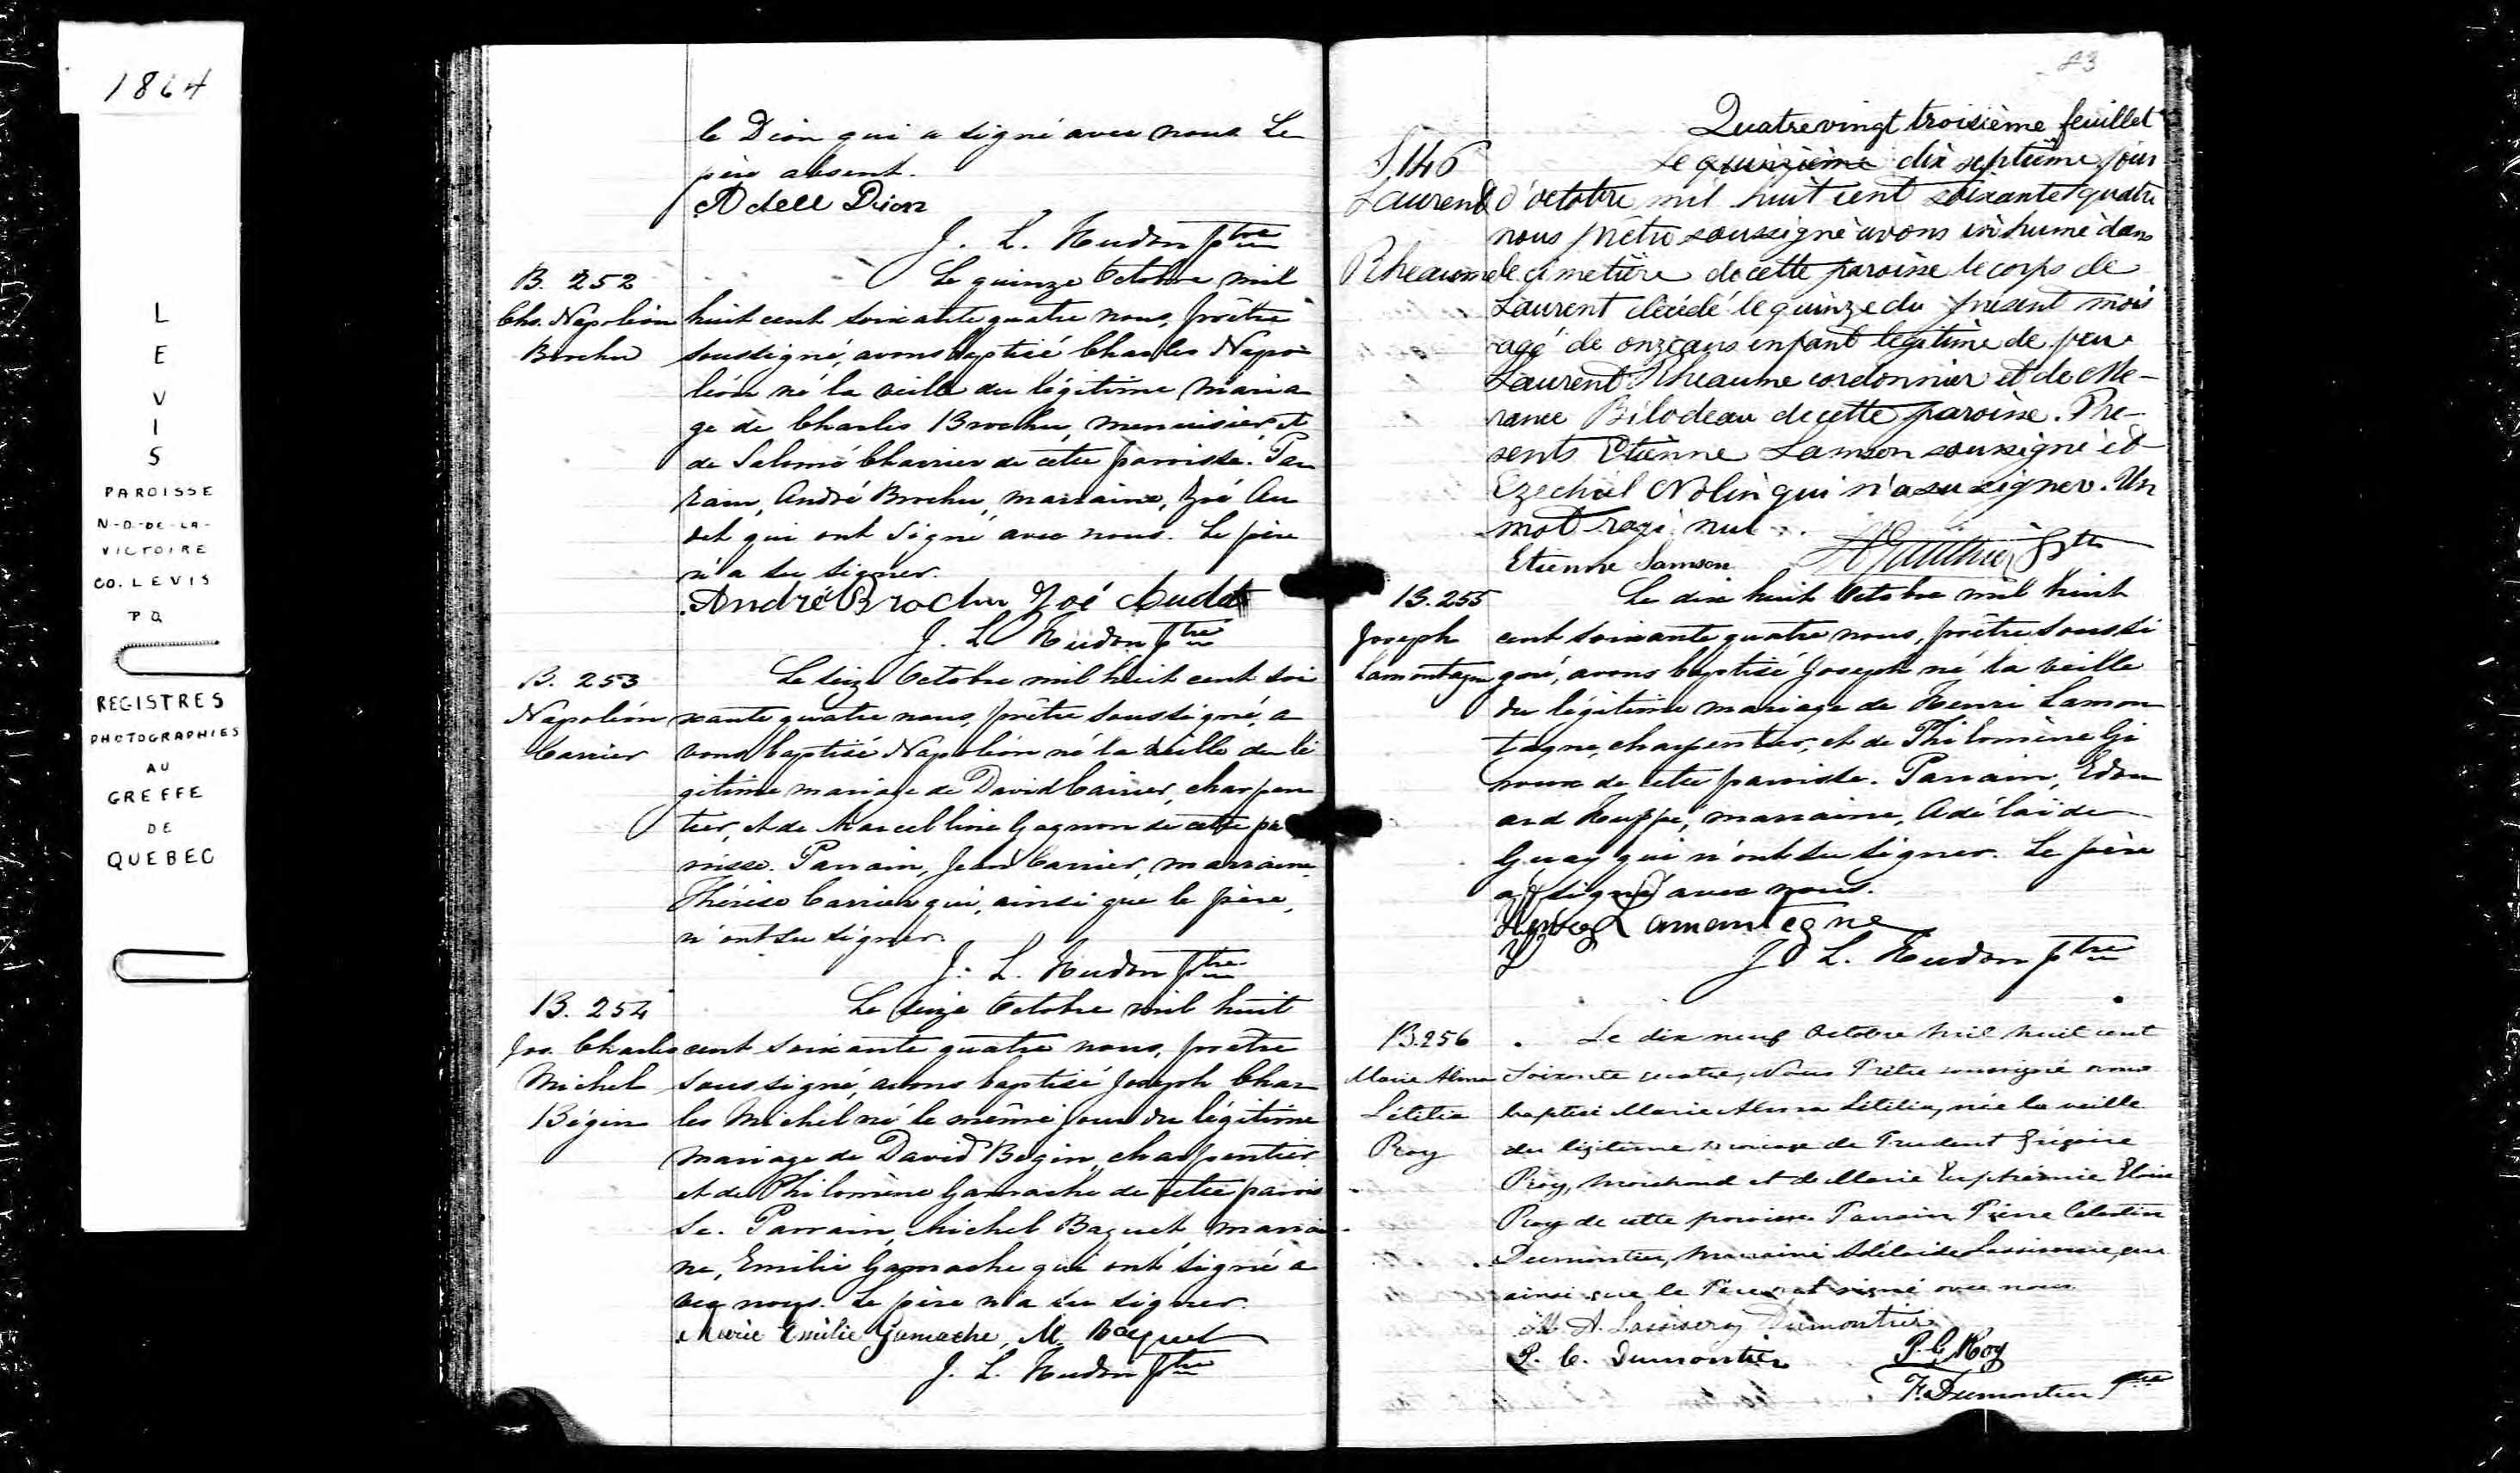 1864
L
E
V
I
S
PAROISSE
N-D-DE-LA-
VICTOIRE
CO. LEVIS
PQ
REGISTRES
PHOTOGRAPHIES
AU
GREFFE
DE
QUEBEC
le Dion qui a signé avec nous Le
père absent.
Adell Dion
J. L. Hudon ptre
B. 252
Chs. Napoléon
Brochu
Le quinze Octobre mil
huit cent soixante quatre nous, prêtre
soussigné, avons baptisé Charles Napo-
léon né la veille du légitime maria
ge de Charles Brochu, menuisier, et
de Salomé Charrier de cette paroisse. Par
rain, André Brochu, marraine, Zoé Au
det qui ont signé avec nous. Le père
n'a su signer.
André Brochu Zoé Audet
J. L. Hudon ptre
B. 253
Napoléon
Carrier
Le seize Octobre mil huit cent soi
xante quatre nous, prêtre soussigné, a
vons baptisé Napoléon né la veille du lé
gitime mariage de David Carrier, charpen
tier, et de Marcelline Gagnon de cette pa
roisse. Parrain, Jean Carrier, marraine,
Thérèse Carrier qui, ainsi que le père,
n'ont su signer.
J. L. Hudon ptre
B. 254
Jos. Charles
Michel
Bégin
Le seize Octobre mil huit
cent soixante quatre nous, prêtre
soussigné, avons baptisé Joseph Char
les Michel né le même jour du légitime
mariage de David Bégin, charpentier
et de Philomène Gamache de cette parois
se. Parrain, Michel Baquet marrai
ne, Emilie Gamache qui ont signé a
vec nous. Le père n'a su signer.
Marie Emilie Gamache, M. Baquet
J. L. Hudon ptre
83
Quatrevingt troisième feuillet
S. 146
Laurent
Rheaume
Le quinzième dix septième jour
d'octobre mil huit cent soixante quatre
nous prêtre soussigné avons inhumé dans
le cimetière de cette paroisse le corps de
Laurent décédé le quinze du present mois
agé de onze ans enfant legitime de feu
Laurent Rheaume cordonnier et de Me-
rance Bilodeau de cette paroisse. Pre-
sents Etienne Samson soussigné et
Ezechiel Nolin qui n'a su signer. Un
mot rayé nul.
Etienne Samson ptre
B. 255
Joseph
Lamontagne
Le dix huit Octobre mil huit
cent soixante quatre nous, prêtre soussi
gné, avons baptisé Joseph né la veille
du légitime mariage de Henri Lamon
tagne, charpentier, et de Philomène Gi
roux de cette paroisse. Parrain, Edou
ard Huppé, marraine, Adélaïde
Guay qui n'ont su signer. Le père
a signé avec nous.
Lamontegne
J. L. Hudon ptre
B. 256
Marie Alma
Létitia
Roy
Le dix neuf Octobre mil huit cent
soixante quatre, Nous Prêtre soussigné avons
baptisé Marie Alma Létitia, née la veille
du légitime mariage de Prudent Grégoire
Roy, marchand et de Marie Euphémie Eloise
Roy de cette paroisse Parrain Pierre Célestin
Dumontier, Marraine Adélaïde Lassiseraye, qui
ainsi que le Père ont signé avec nous.
M. A. Lassiseray Dumontier
P. C. Dumontier P. G. Roy
F. Dumontier Ptre